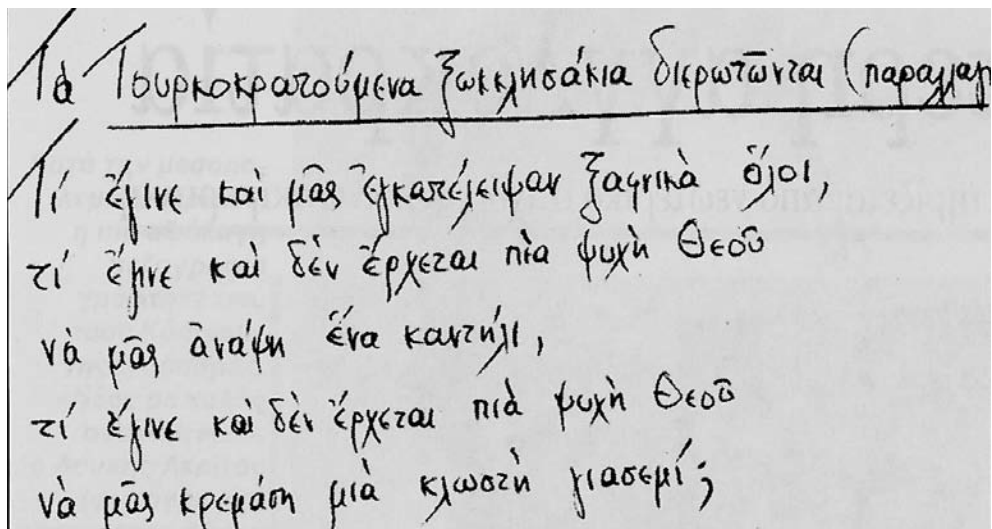 Τὰ Τουρκοκρατούμενα ξωκκλησάκια διερωτῶνται (παραλλαγ
Τί ἔγινε καὶ μᾶς ἐγκατέλειψαν ξαφνικὰ ὅλοι,
τί ἔγινε καὶ δὲν ἔρχεται πιὰ ψυχὴ Θεοῦ
νὰ μᾶς ἀνάψη ἕνα καντήλι,
τί ἔγινε καὶ δὲν ἔρχεται πιὰ ψυχὴ Θεοῦ
νὰ μᾶς κρεμάση μιὰ κλωστὴ γιασεμί;